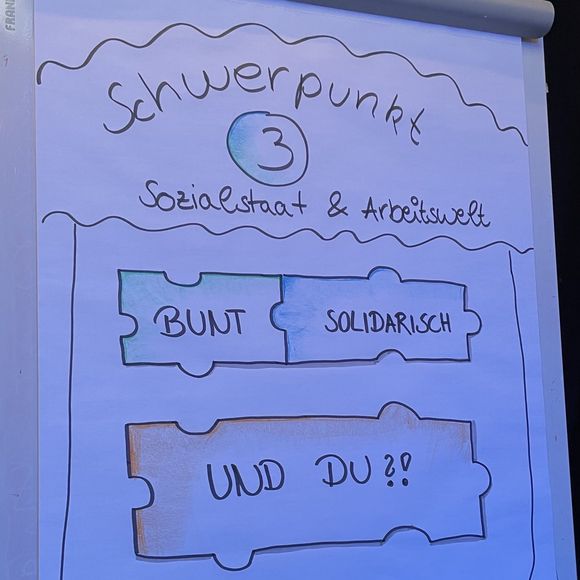 FRANK
Schwerpunkt
3
Sozialstaat & Arbeitswelt
BUNT SOLIDARISCH
UND DU?!